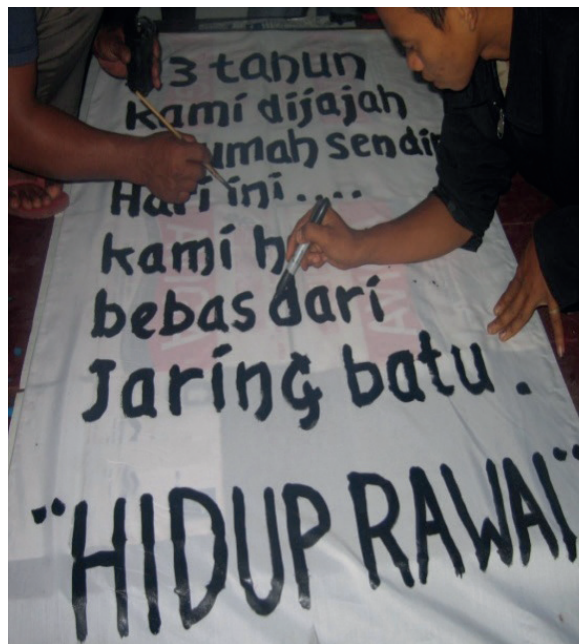 3 tahun
kami dijajah
rumah sendiri
Hari ini ....
kami
bebas dari
Jaring batu .
"HIDUP RAWAI"